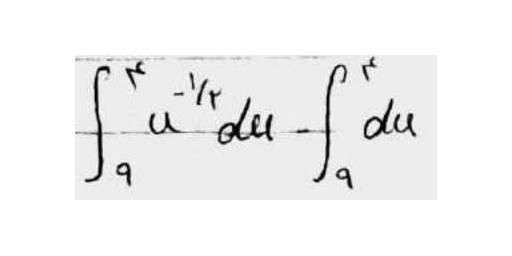 ∫_۹^۴ u^{-۱/۲} du - ∫_۹^۴ du